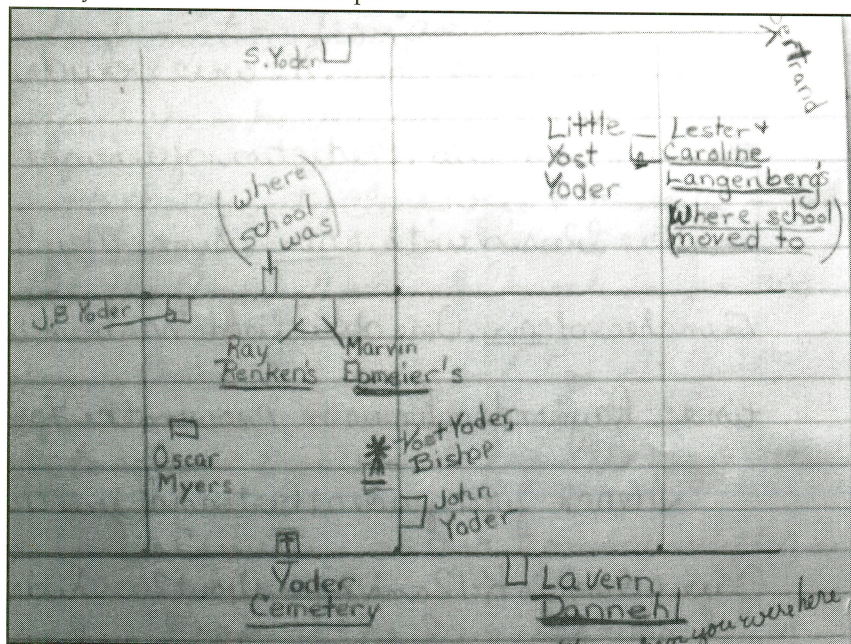 S. Yoder
Bertrand
Little
Yost
Yoder
Lester +
Caroline
Langenberg's
(Where school
moved to)
(where
school
was)
J.B Yoder
Ray
Renken's
Marvin
Ebmeier's
Oscar
Myers
Yost Yoder,
Bishop
John
Yoder
Yoder
Cemetery
Lavern
Dannehl
you were here